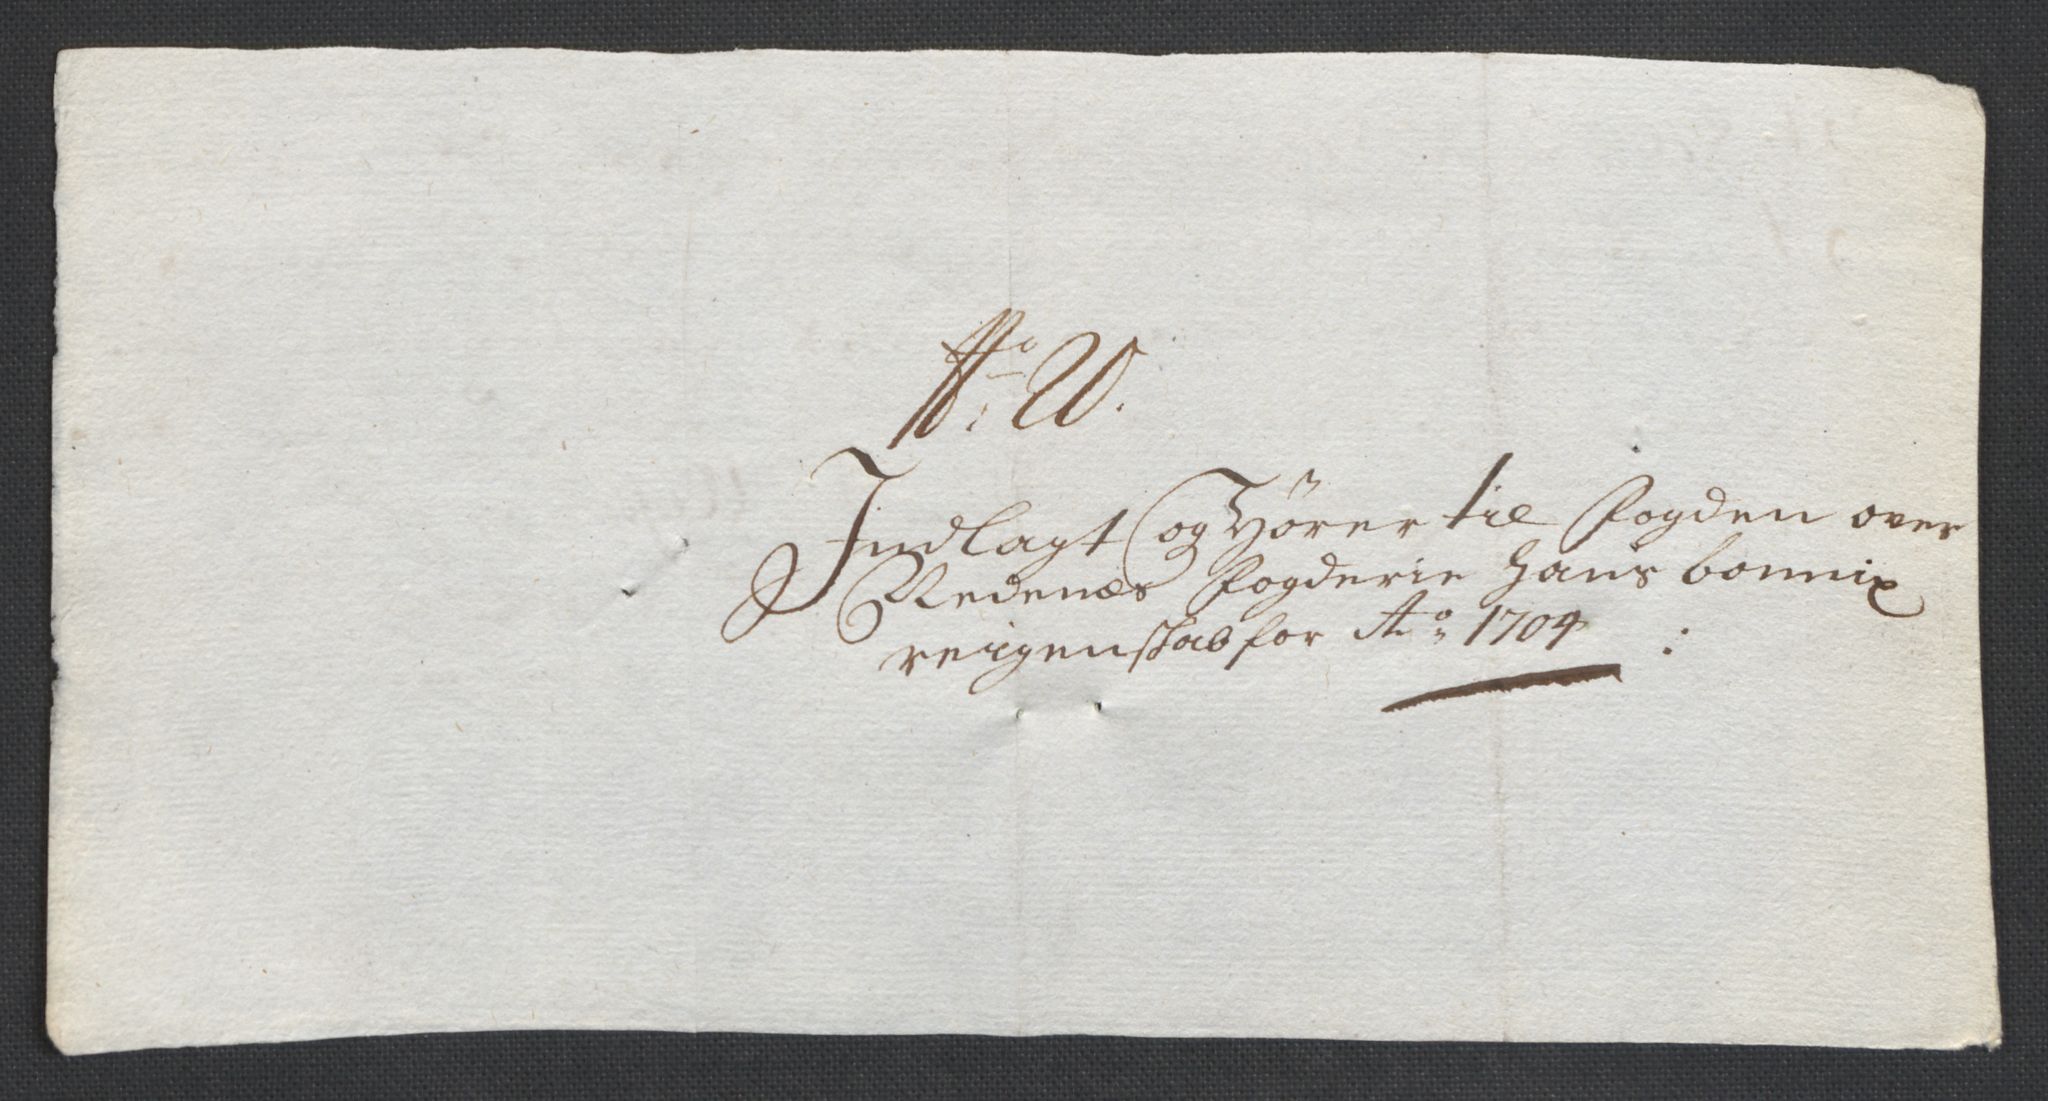 No: W.
Indlagt og Hører til Fogden over
Nedenæs Fogderie Hans bonnix
reigenskab for Ao 1704 :